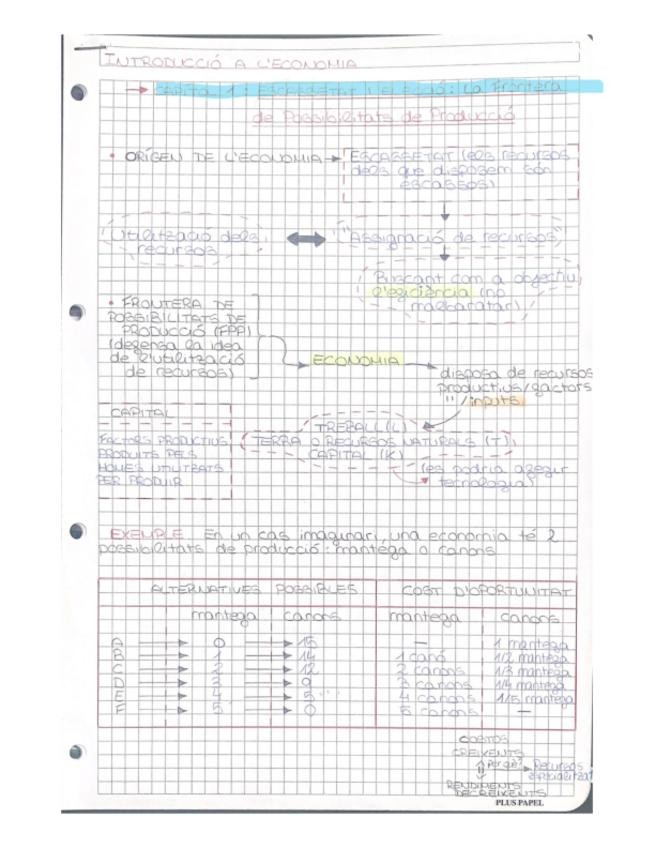 INTRODUCCIÓ A L'ECONOMIA
→ CAPÍTOL 1: ESCASSETAT I ELECCIÓ: La Frontera
de Possibilitats de Producció
• ORÍGEN DE L'ECONOMIA → ESCASSETAT (els recursos
dels que disposem són
escassos)
Utilització dels
recursos
"Assignació de recursos"
Buscant com a objectiu
l'eficiència (no
malbaratar)
• FRONTERA DE
POSSIBILITATS DE
PRODUCCIÓ (FPP)
(defensa la idea
de l'utilització
de recursos)
ECONOMIA
disposa de recursos
productius/factors
"/inputs
TREBALL (L)
TERRA O RECURSOS NATURALS (T)
CAPITAL (K)
(es podria afegir
tecnologia)
CAPITAL
FACTORS PRODUCTIUS
PRODUITS PELS
HOMES UTILITZATS
PER PRODUIR
EXEMPLE En un cas imaginari, una economia té 2
possibilitats de producció: mantega o canons
ALTERNATIVES POSSIBLES COST D'OPORTUNITAT
mantega canons mantega canons
A → 0 → 15 — 1 mantega
B → 1 → 14 1 canó 1/2 mantega
C → 2 → 12 2 canons 1/3 mantega
D → 3 → 9 3 canons 1/4 mantega
E → 4 → 5 4 canons 1/5 mantega
F → 5 → 0 5 canons —
COSTOS
CREIXENTS
Per què? → Recursos
especialitzats
RENDIMENTS
DECREIXENTS
PLUS PAPEL